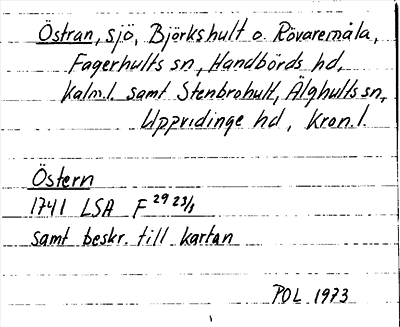 Östran, sjö, Björkshult o Rövaremåla,
Fagerhults sn, Handbörds hd,
Kalm.l. samt Stenbrohult, Älghults sn,
Uppvidinge hd, Kron.l.
Östern
1741 LSA F 29 23/1
samt beskr. till kartan
POL 1973